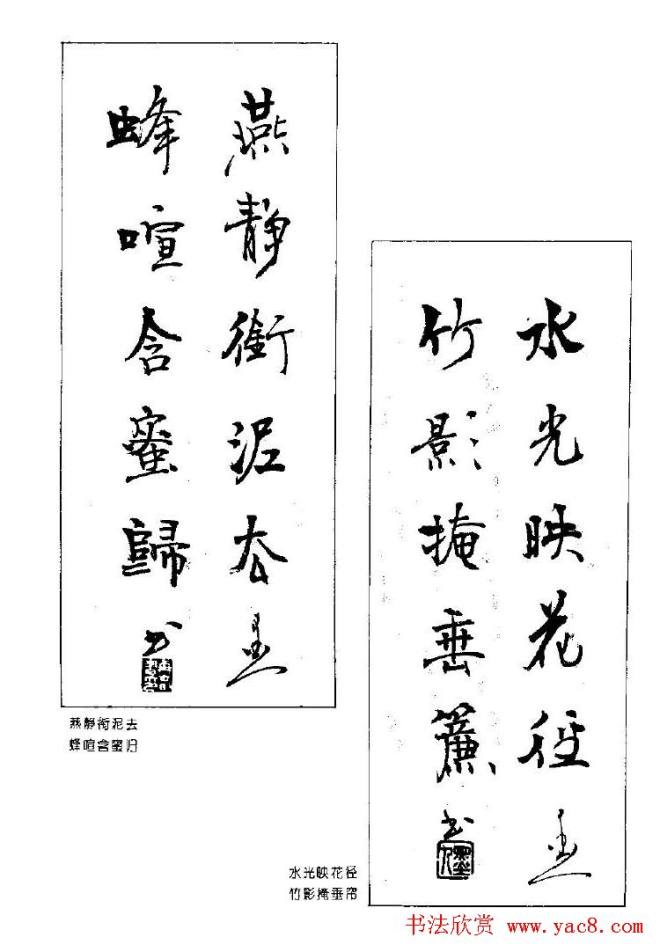 燕靜銜泥去
蜂喧含蜜歸
书
燕静衔泥去
蜂喧含蜜归
水光映花径
竹影掩垂簾
书
水光映花径
竹影掩垂帘
书法欣赏 www.yac8.com